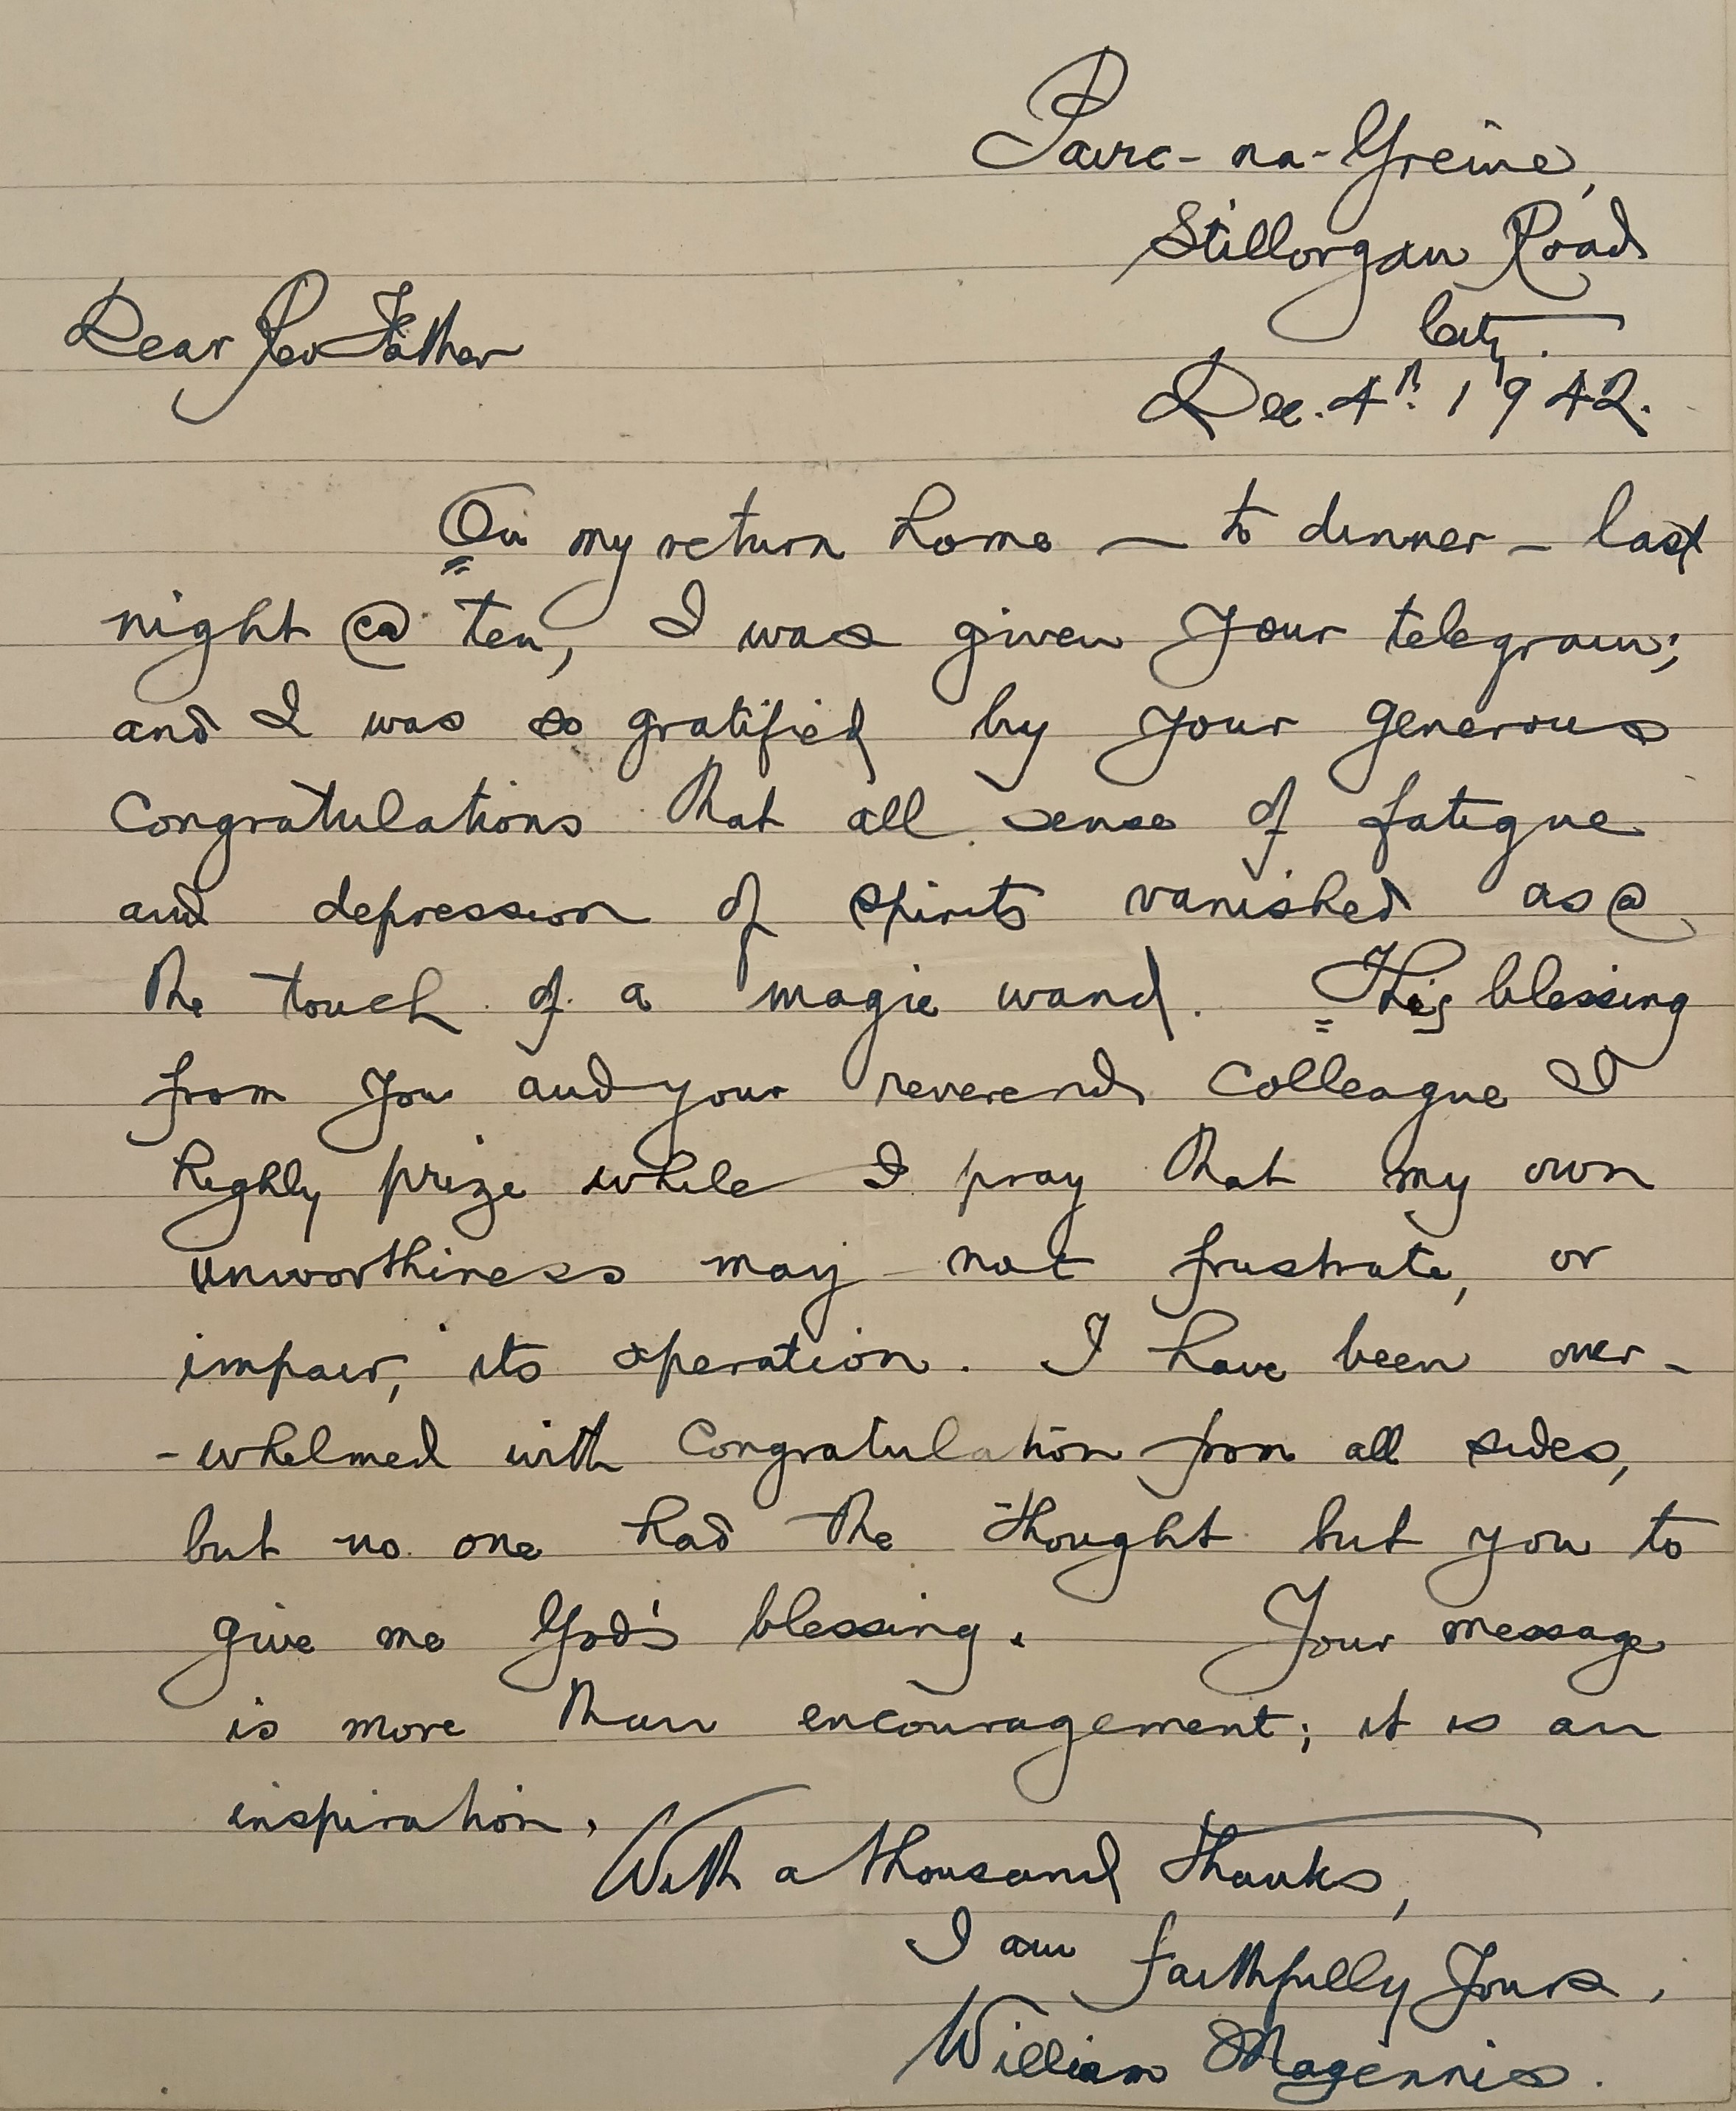 Pairc-na-Greine,
Stillorgan Road
City.
Dec. 4th. 1942.
Dear Rev Father
On my return home — to dinner — last
night @ ten, I was given your telegram;
and I was so gratified by your generous
congratulations that all sense of fatigue
and depression of spirits vanished as @
the touch of a magic wand. This blessing
from you and your reverend colleague I
highly prize while I pray that my own
unworthiness may not frustrate, or
impair, its operation. I have been over-
-whelmed with congratulation from all sides,
but no one had the thought but you to
give me God's blessing. Your message
is more than encouragement; it is an
inspiration.
With a thousand thanks,
I am faithfully yours,
William Magennis.